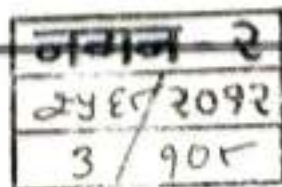 नगन - २
२५६८/२०१२
३ / १०८